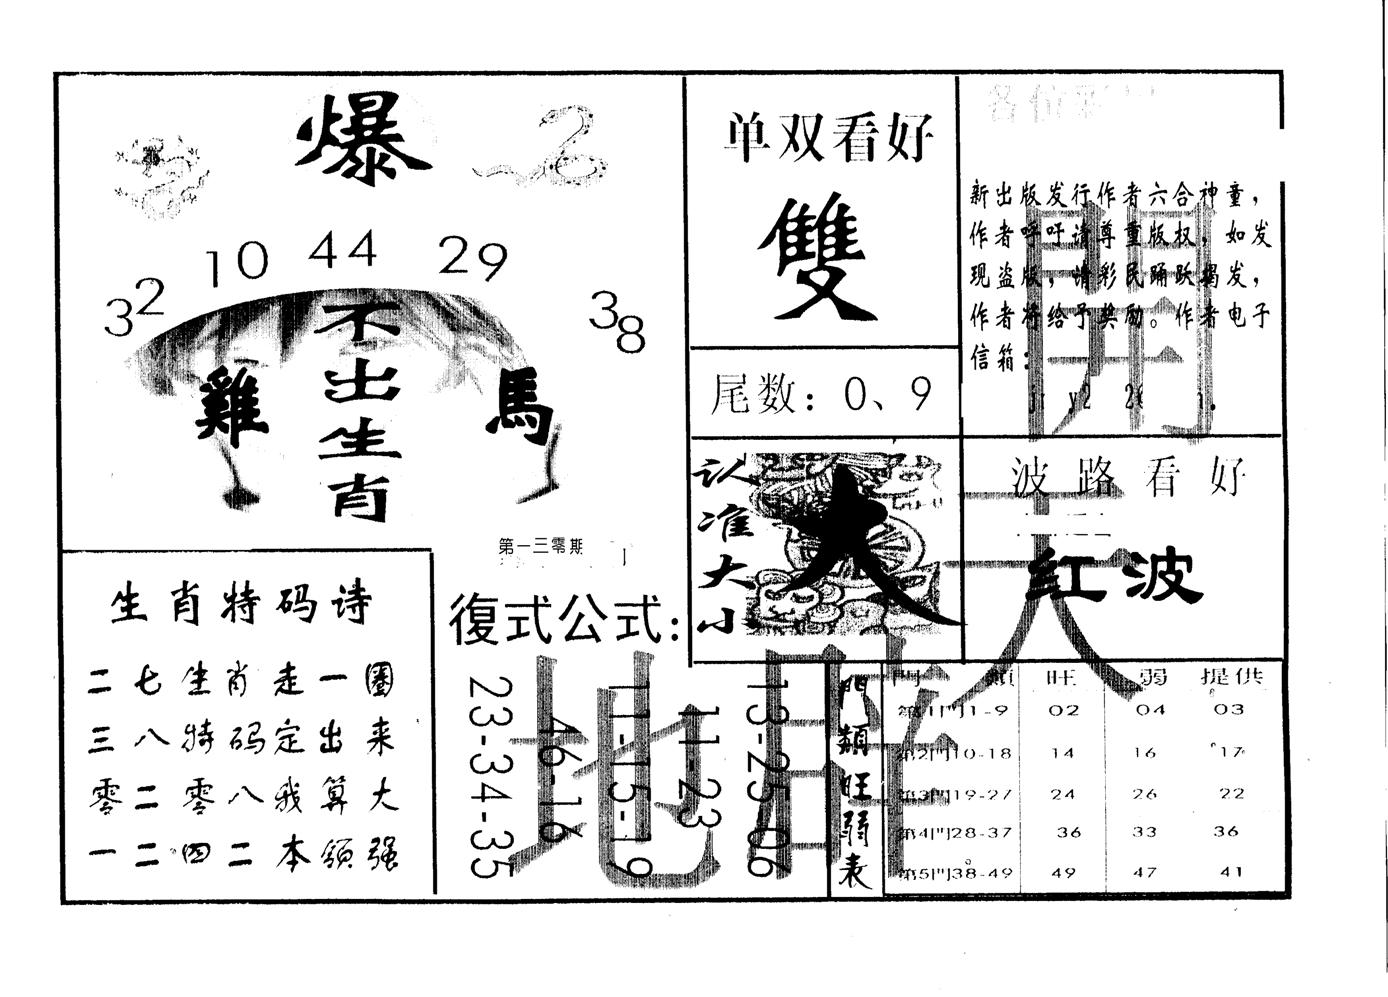 爆
32 10 44 29 38
不出生肖
雞 馬
第一三零期
单双看好
雙
尾数：0、9
新出版发行作者六合神童，
作者呼吁请尊重版权，如发
现盗版，请彩民踊跃揭发，
作者将给予奖励。作者电子
信箱：
认准大小
大
波路看好
红波
生肖特码诗
二七生肖走一圈
三八特码定出来
零二零八我算大
一二四二本领强
復式公式：
23-34-35
46-16
11-15-19
11-23
13-25-06
門類旺弱表
門類 旺 弱 提供
第1門1-9 02 04 03
第2門10-18 14 16 17
第3門19-27 24 26 22
第4門28-37 36 33 36
第5門38-49 49 47 41